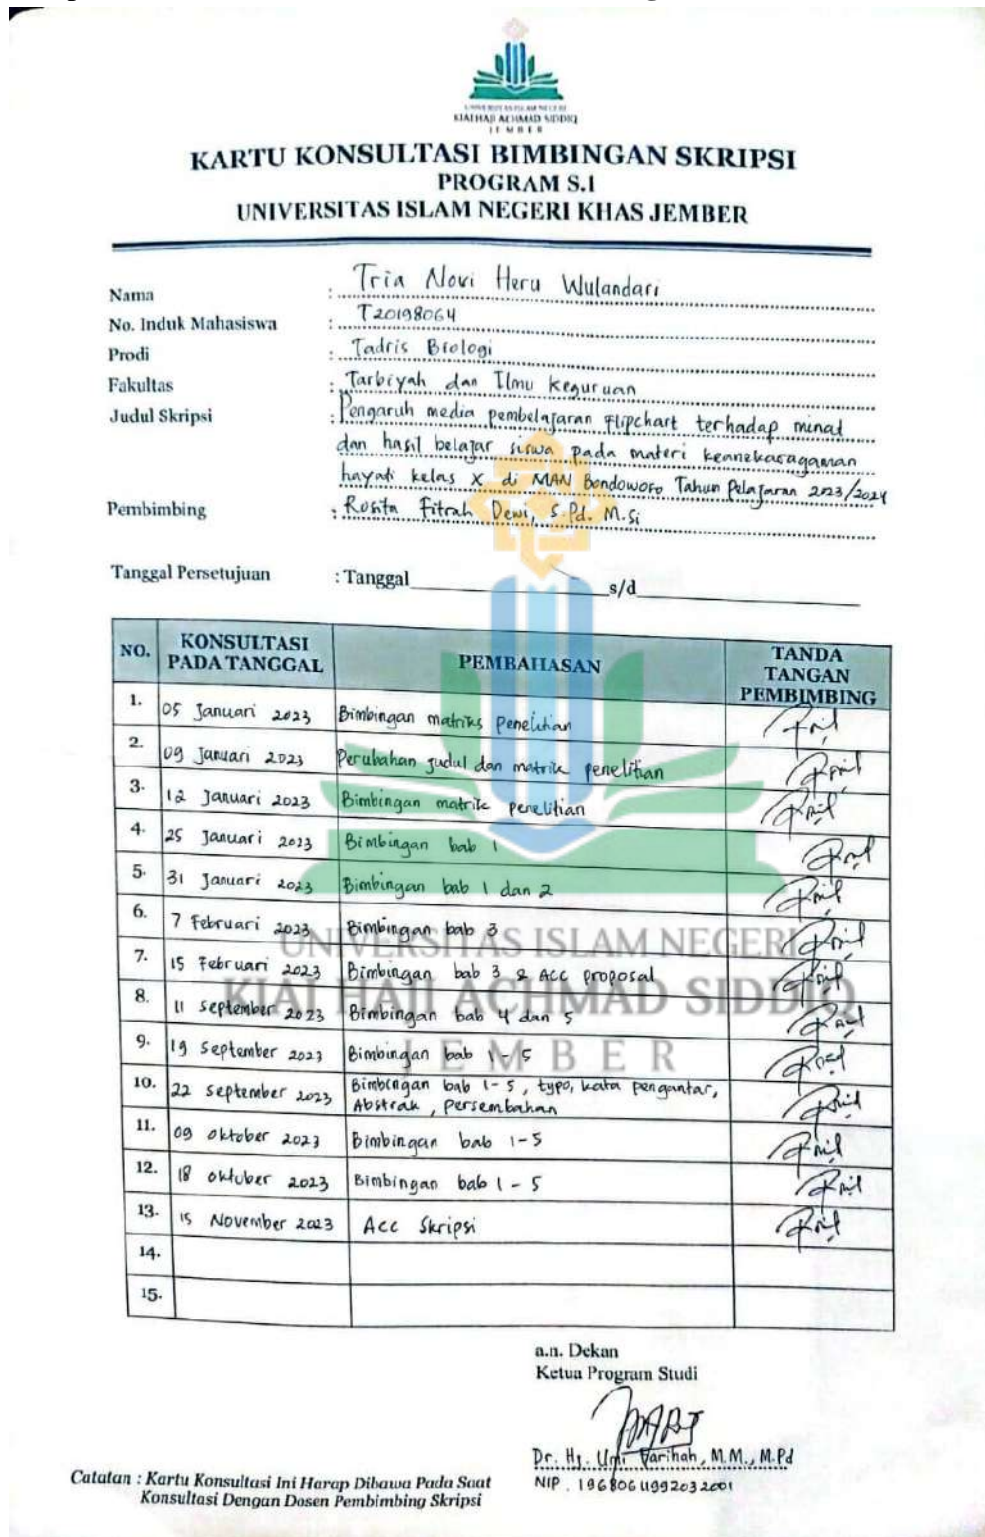 UNIVERSITAS ISLAM NEGERI
KIAI HAJI ACHMAD SIDDIQ
JEMBER
KARTU KONSULTASI BIMBINGAN SKRIPSI
PROGRAM S.1
UNIVERSITAS ISLAM NEGERI KHAS JEMBER
Nama : Tria Novi Heru Wulandari
No. Induk Mahasiswa : T20198064
Prodi : Tadris Biologi
Fakultas : Tarbiyah dan Ilmu Keguruan
Judul Skripsi : Pengaruh media pembelajaran flipchart terhadap minat
dan hasil belajar siswa pada materi keanekaragaman
hayati kelas X di MAN Bondowoso Tahun Pelajaran 2023/2024
Pembimbing : Rosita Fitrah Dewi, S.Pd. M.Si
Tanggal Persetujuan : Tanggal s/d
NO. KONSULTASI PADA TANGGAL PEMBAHASAN TANDA TANGAN PEMBIMBING
1. 05 Januari 2023 Bimbingan matriks penelitian
2. 09 Januari 2023 Perubahan judul dan matrik penelitian
3. 12 Januari 2023 Bimbingan matrik penelitian
4. 25 Januari 2023 Bimbingan bab 1
5. 31 Januari 2023 Bimbingan bab 1 dan 2
6. 7 Februari 2023 Bimbingan bab 3
7. 15 Februari 2023 Bimbingan bab 3 & ACC proposal
8. 11 September 2023 Bimbingan bab 4 dan 5
9. 19 September 2023 Bimbingan bab 1-5
10. 22 September 2023 Bimbingan bab 1-5, typo, kata pengantar,
Abstrak, Persembahan
11. 09 Oktober 2023 Bimbingan bab 1-5
12. 18 Oktober 2023 Bimbingan bab 1-5
13. 15 November 2023 Acc Skripsi
14.
15.
UNIVERSITAS ISLAM NEGERI
KIAI HAJI ACHMAD SIDDIQ
JEMBER
a.n. Dekan
Ketua Program Studi
Dr. Hj. Umi Farihah, M.M., M.Pd
NIP. 196806011992032001
Catatan : Kartu Konsultasi Ini Harap Dibawa Pada Saat
Konsultasi Dengan Dosen Pembimbing Skripsi